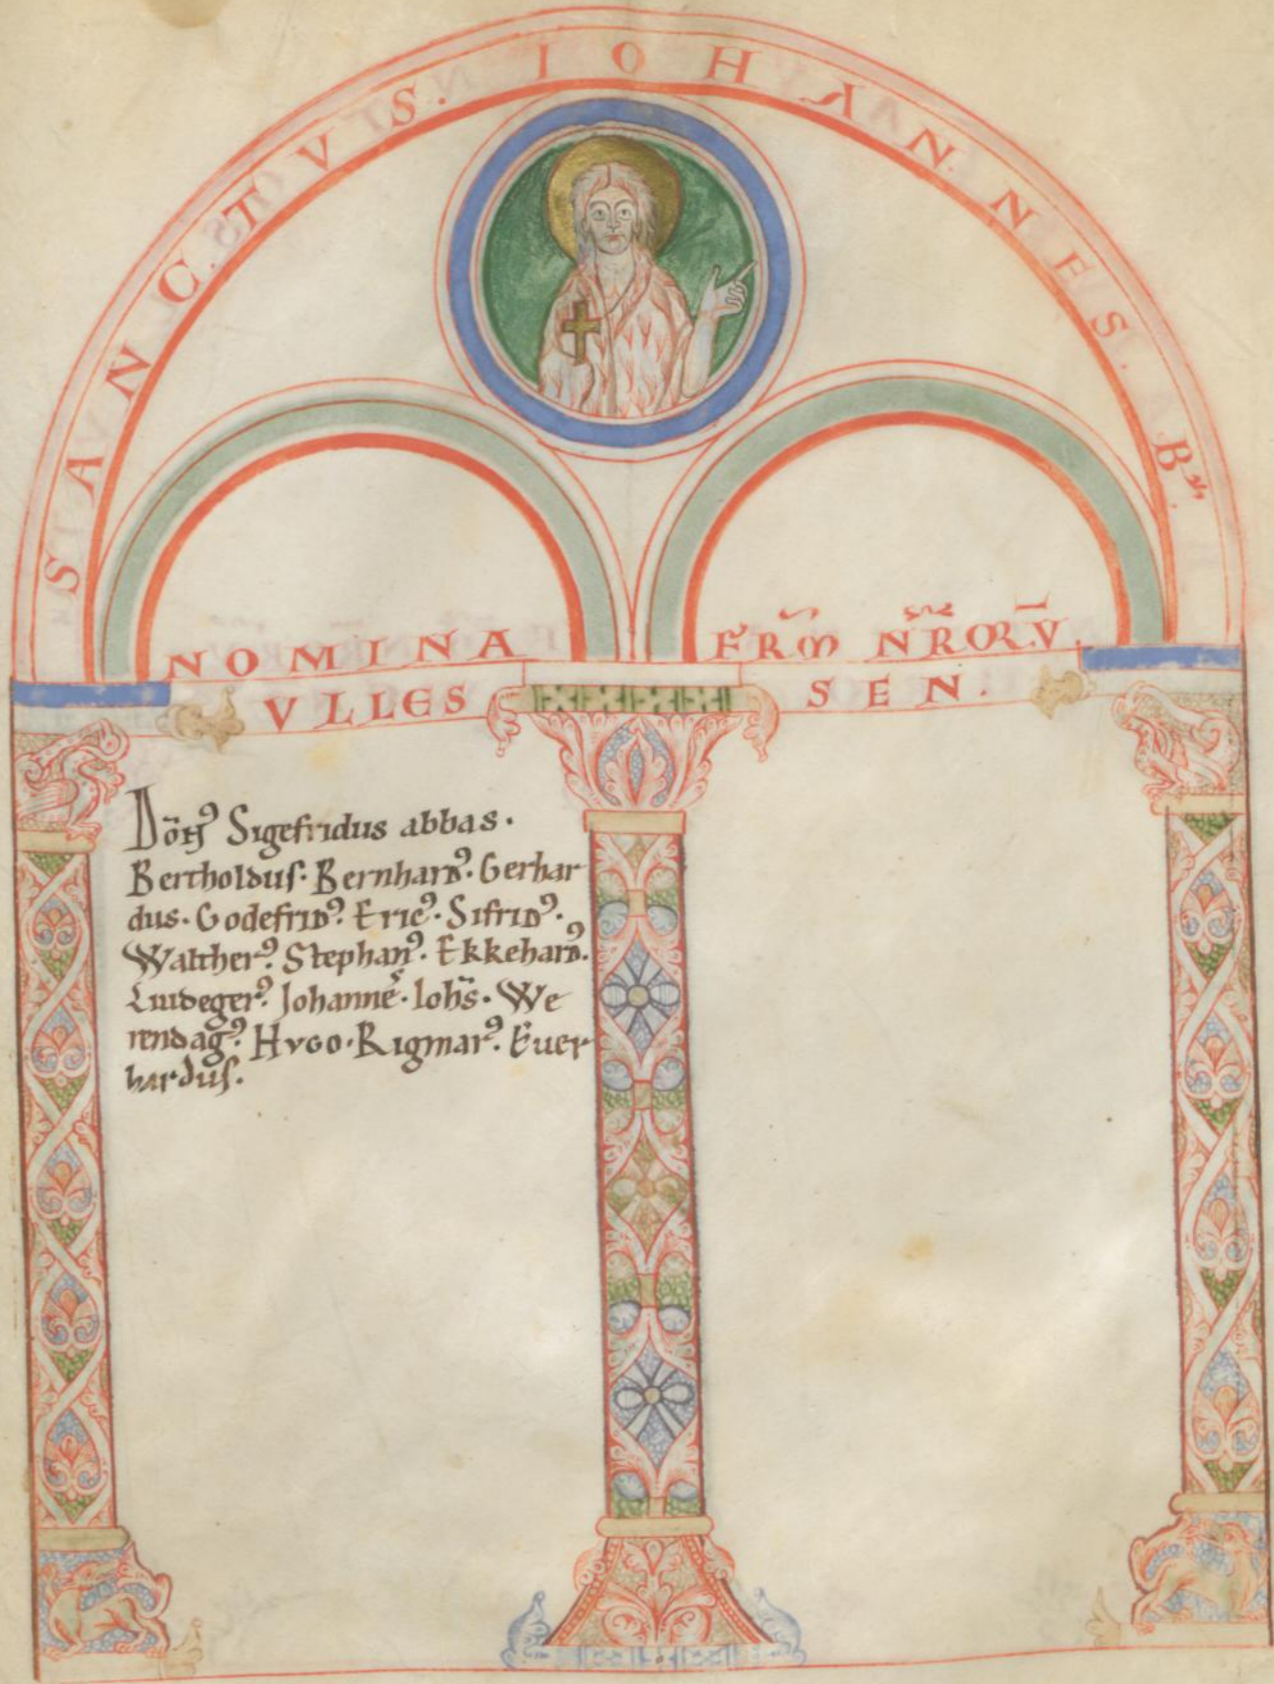 SANCTVS. IOHANNES. Bꝰ.
NOMINA FRM̃ NR̃ORV̄.
VLLESSEN.
Dõnꝰ Sigefridus abbas.
Bertholduſ. Bernhardꝰ. Gerhar
dus. Godefridꝰ. Ericꝰ. Sifridꝰ.
Waltherꝰ. Stephanꝰ. Ekkehardꝰ.
Liudegerꝰ. Johanneſ. Ioh̄s. We
rendagꝰ. Hvgo. Rigmarꝰ. Euer
harduſ.